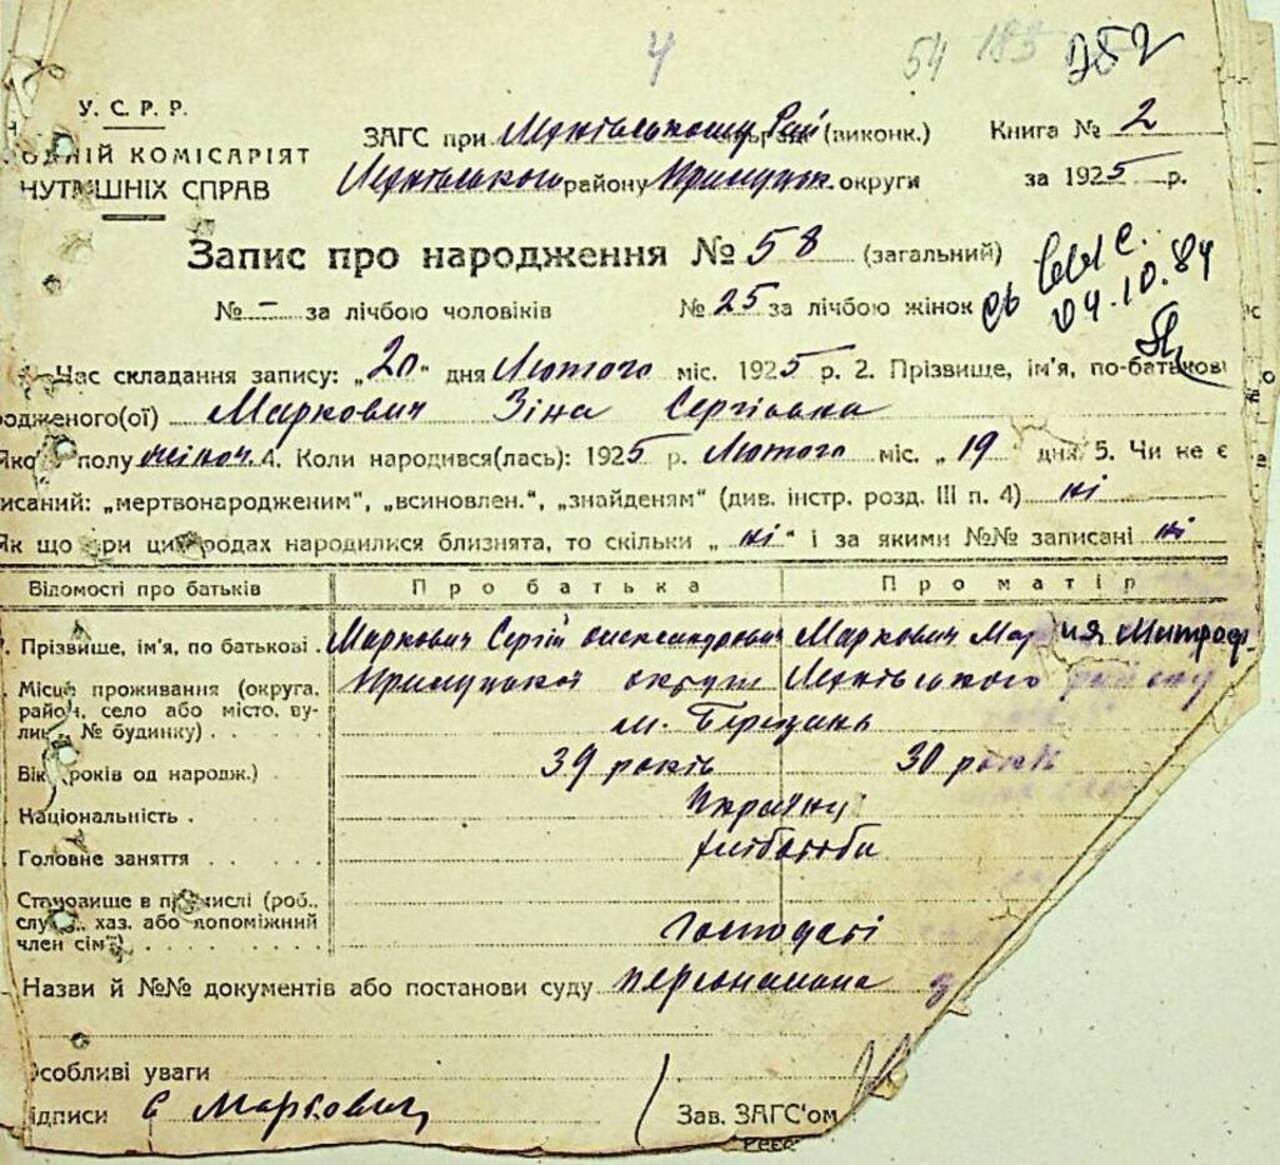 4 54 183 252
У. С. Р. Р.
ЗАГС при (виконк.) Книга № 2
КОМІСАРІЯТ
району округи за 1925 р.
СПРАВ
Запис про народження № 58 (загальний)
№ – за лічбою чоловіків № 25 за лічбою жінок
04.10.84
Час складання запису: „20“ дня Лютого міс. 1925 р. 2. Прізвище, ім'я, по-батькові
одженого(ої) Маркович Зіна Сергіївна
полу жіноч. 4. Коли народився(лась): 1925 р. Лютого міс. „19 дня 5. Чи не є
исаний: „мертвонародженим“, „всиновлен.“, „знайденям“ (див. інстр. розд. III п. 4) ні
Як що при цих родах народилися близнята, то скільки „ні“ і за якими №№ записані ні
Відомості про батьків Про батька Про матір
Прізвище, ім'я, по батькові . Маркович Сергій Олександрович Маркович Марія Митроф.
Місце проживання (округа, Прилуцької округи
район, село або місто, ву-
лиця, № будинку) . . . . . м. Березань
Вік (років од народж.) 39 років 30 років
Національність . Українці
Головне заняття . . . . . хлібороби
Становище в промислі (роб.,
служ., хаз. або допоміжний
член сім'ї) . . . . . . . Господарі
Назви й №№ документів або постанови суду
Особливі уваги
ідписи С Маркович Зав. ЗАГС'ом